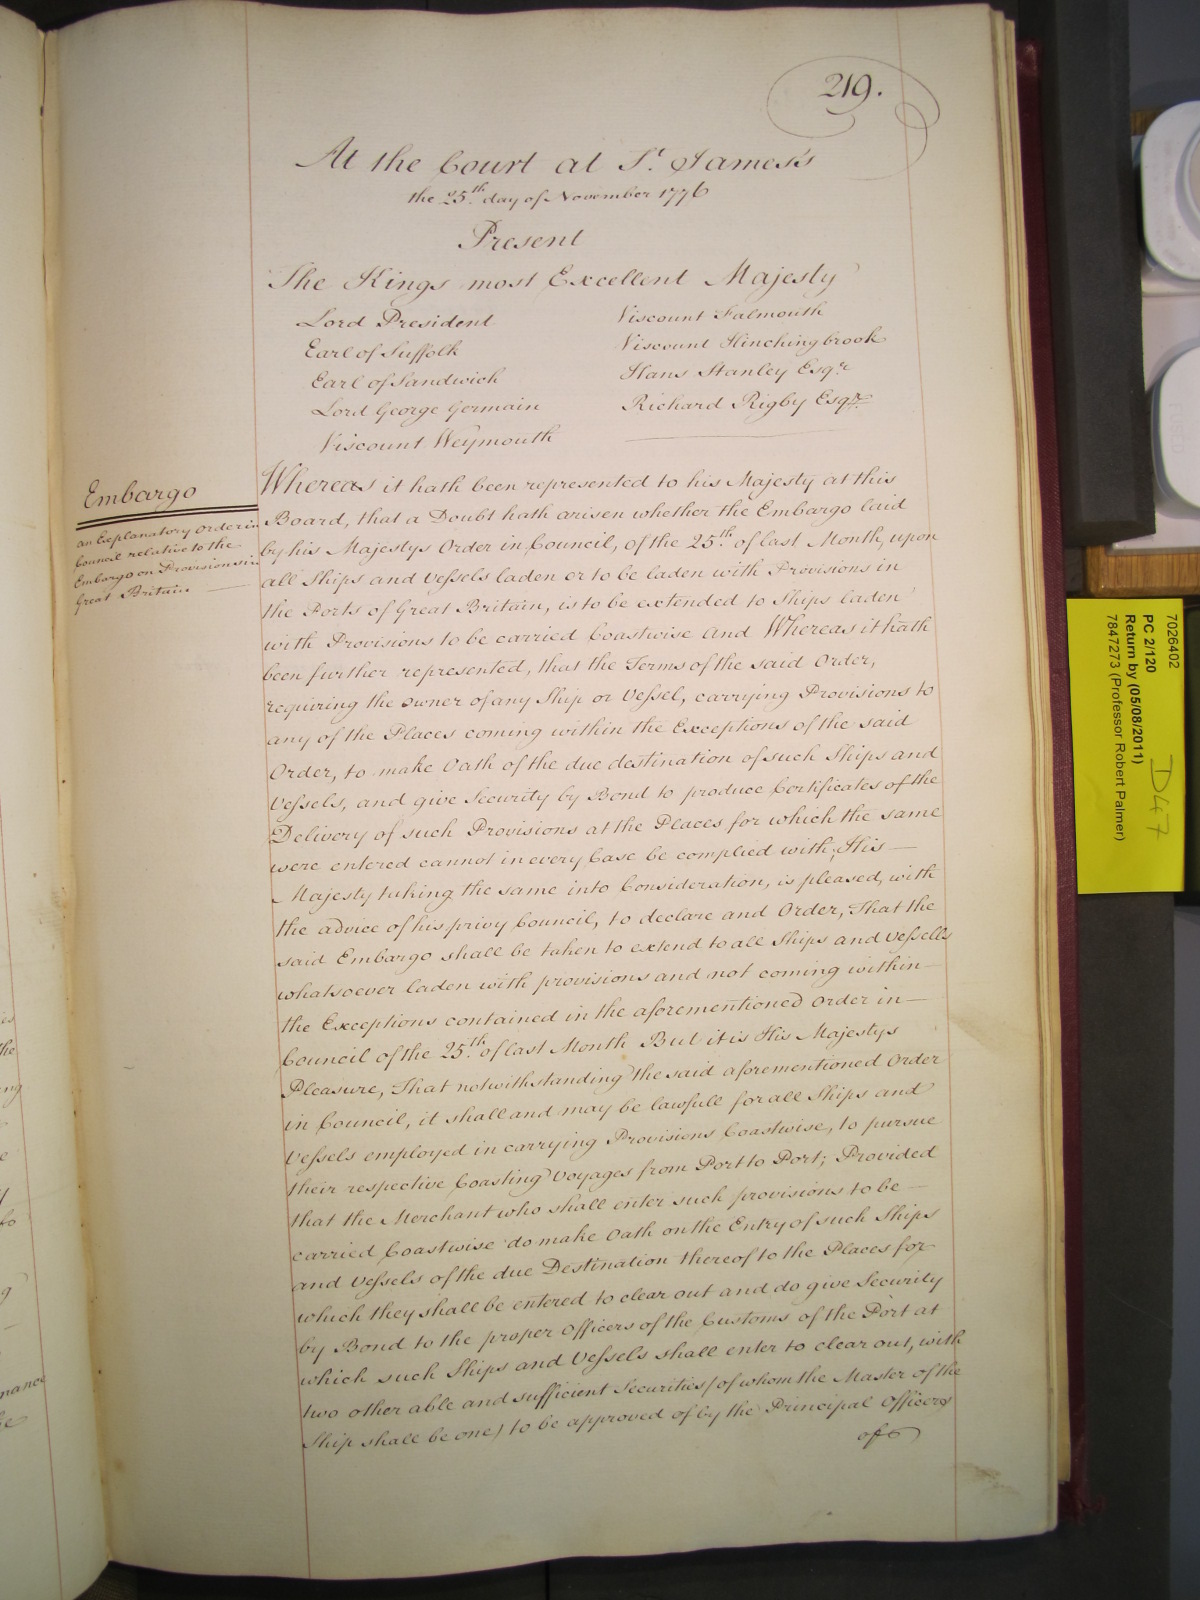 219.
At the Court at St. James's
the 25th. day of November 1776
Present
The Kings most Excellent Majesty
Lord President
Earl of Suffolk
Earl of Sandwich
Lord George Germain
Viscount Weymouth
Viscount Falmouth
Viscount Hinchingbrook
Hans Stanley Esqr.
Richard Rigby Esqr.
Embargo
an Explanatory Order in
Council relative to the
Embargo on Provisions in
Great Britain.
Whereas it hath been represented to his Majesty at this
Board, that a Doubt hath arisen whether the Embargo laid
by his Majestys Order in Council, of the 25th. of last Month, upon
all Ships and Vessels laden or to be laden with Provisions in
the Ports of Great Britain, is to be extended to Ships laden
with Provisions to be carried Coastwise And Whereas it hath
been further represented, that the Terms of the said Order,
requiring the owner of any Ship or Vessel, carrying Provisions to
any of the Places coming within the Exceptions of the said
Order, to make Oath of the due destination of such Ships and
Vessels, and give Security by Bond to produce Certificates of the
Delivery of such Provisions at the Places for which the same
were entered cannot in every Case be complied with; His
Majesty taking the same into Consideration, is pleased, with
the advice of his privy Council, to declare and Order, That the
said Embargo shall be taken to extend to all Ships and Vessells
whatsoever laden with provisions and not coming within
the Exceptions contained in the aforementioned Order in
Council of the 25th. of last Month But it is His Majestys
Pleasure, That notwithstanding the said aforementioned Order
in Council, it shall and may be lawfull for all Ships and
Vessels employed in carrying Provisions Coastwise, to pursue
their respective Coasting Voyages from Port to Port; Provided
that the Merchant who shall enter such provisions to be
carried Coastwise do make Oath on the Entry of such Ships
and Vessels of the due Destination thereof to the Places for
which they shall be entered to clear out and do give Security
by Bond to the proper Officers of the Customs of the Port at
which such Ships and Vessels shall enter to clear out, with
two other able and sufficient Securities (of whom the Master of the
Ship shall be one) to be approved of by the Principal Officers
of
7026402
PC 2/120
Return by (05/08/2011)
7847273 (Professor Robert Palmer)
D47